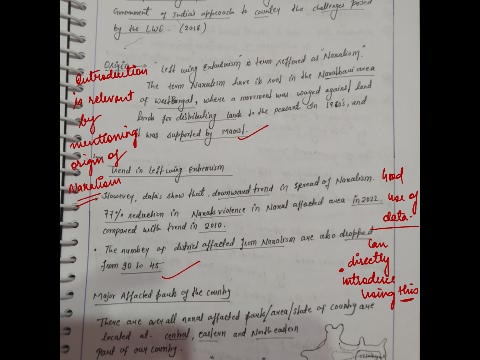 Government of India's approach to counter the challenges posed
by the LWE. (2018)
Origin → "Left wing Extremism" is term reffered as "Naxalism".
The term Naxalism have its root in the Naxalbari area
of West Bengal, where a movement was waged against land
lords for distributing lands to the peasant in 1960's, and
was supported by Maoist.
Introduction
is relevant
by
mentioning
origin of
Naxalism
Trend in Left wing Extremism
However, data's show that, downward trend in spread of Naxalism.
77% reduction in Naxals violence in Naxal affected area in 2022
compared with trend in 2010.
Good
use of
data.
• The number of district affected from Naxalism are also dropped
from 90 to 45
Can
directly
introduce
using this
Major Affected parts of the country
There are overall naxal affected parts/area/state of country are
located at central, eastern and North eastern
part of our country.